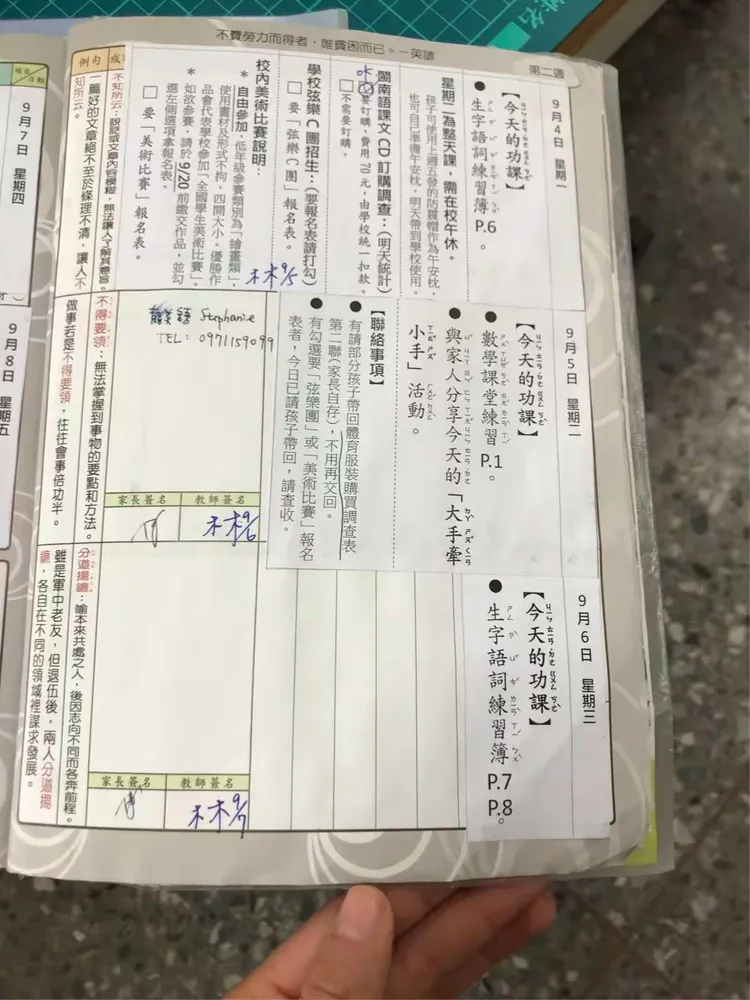 不費勞力而得者，唯貧困而已。－英諺
第二週
9月4日 星期一
【今天的功課】
● 生字語詞練習簿P.6。
星期二為整天課，需在校午休。
孩子可使用上週五發的防震帽作為午安枕，
也可自己準備午安枕，明天帶到學校使用。
閩南語課文CD訂購調查：(明天統計)
要訂購，費用70元，由學校統一扣款。
□ 不需要訂購。
學校弦樂C團招生：(要報名表請打勾)
□ 要「弦樂C團」報名表。
校內美術比賽說明：
* 自由參加，低年級參賽類別為「繪畫類」，
使用畫材及形式不拘，四開大小。優勝作
品會代表學校參加「全國學生美術比賽」。
* 如欲參賽，請於9/20前繳交作品，並勾
選左側選項拿報名表。
□ 要「美術比賽」報名表。
9/5
例句
成語
不知所云：說話或文章內容模糊，無法讓人了解其意旨。
一篇好的文章絕不至於條理不清，讓人不
知所云。
9月5日 星期二
【今天的功課】
● 數學課堂練習P.1。
● 與家人分享今天的「大手牽
小手」活動。
【聯絡事項】
● 有請部分孩子帶回體育服裝購買調查表
第二聯(家長自存)，不用再交回。
● 有勾選要「弦樂團」或「美術比賽」報名
表者，今日已請孩子帶回，請查收。
Stephanie
TEL: 0971159099
家長簽名
教師簽名
9/6
不得要領：無法掌握到事物的要點和方法。
做事若是不得要領，往往會事倍功半。
9月6日 星期三
【今天的功課】
● 生字語詞練習簿
P.7
P.8。
家長簽名
教師簽名
9/7
分道揚鑣：喻本來共處之人，後因志向不同而各奔前程。
雖是軍中老友，但退伍後，兩人分道揚
鑣，各自在不同的領域裡謀求發展。
9月7日 星期四
9月8日 星期五